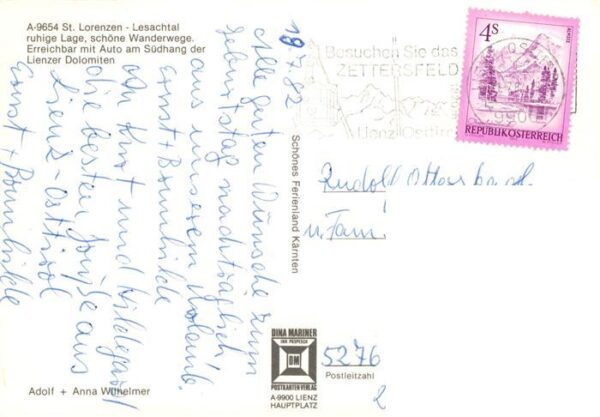 A-9654 St. Lorenzen - Lesachtal
ruhige Lage, schöne Wanderwege.
Erreichbar mit Auto am Südhang der
Lienzer Dolomiten
19.7.82
Alle guten Wünsche zum
Geburtstag nachträglich
aus unserem Urlaub.
Ernst + Brunhilde
von Kurt und Hildegard
die besten Grüße aus
Lienz-Osttirol
Ernst + Brunhilde
Adolf + Anna Wilhelmer
Schönes Ferienland Kärnten
DINA MARINER
DM
POSTKARTENVERLAG
A-9900 LIENZ
HAUPTPLATZ
Besuchen Sie das
ZETTERSFELD
Lienz Osttirol
9900
4S
REPUBLIK ÖSTERREICH
Rudolf
u. Fam
5276
Postleitzahl
2